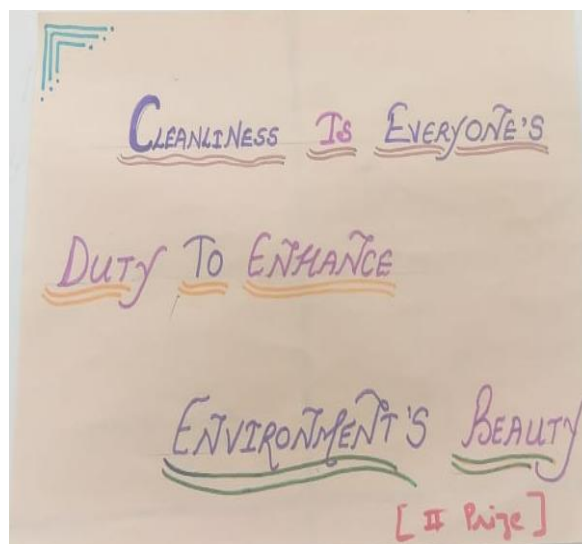 CLEANLINESS IS EVERYONE'S
DUTY TO ENHANCE
ENVIRONMENT'S BEAUTY
[ II Prize ]